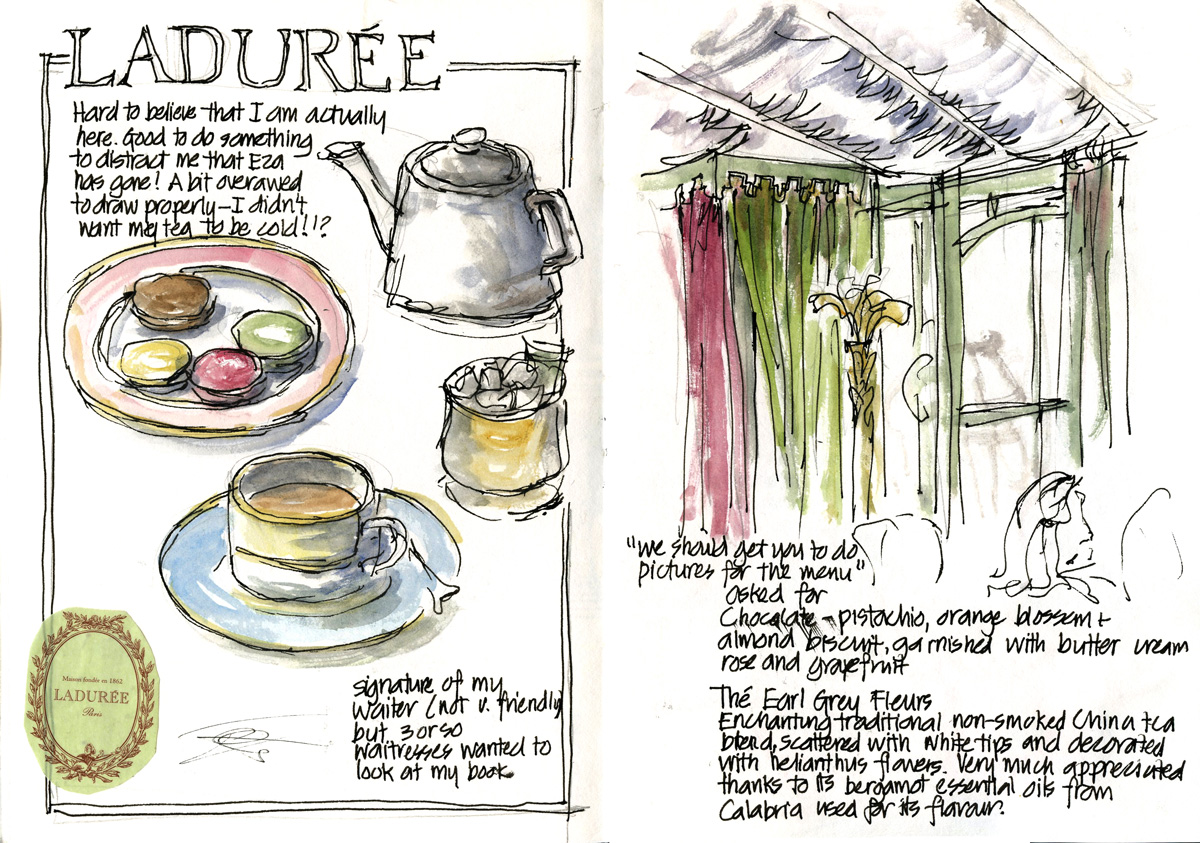 LADURÉE
Hard to believe that I am actually
here. Good to do something
to distract me that Eza
has gone! A bit overawed
to draw properly – I didn't
want my tea to be cold!!?
Maison fondée en 1862
LADURÉE
Paris
signature of my
waiter (not v. friendly)
but 3 or so
waitresses wanted to
look at my book.
"we should get you to do
pictures for the menu"
asked for
Chocolate - pistachio, orange blossom +
almond biscuit, garnished with butter cream
rose and grapefruit
Thé Earl Grey Fleurs
Enchanting traditional non-smoked China tea
blend, scattered with white tips and decorated
with helianthus flavers. Very much appreciated
thanks to its bergamot essential oils from
Calabria used for its flavour.